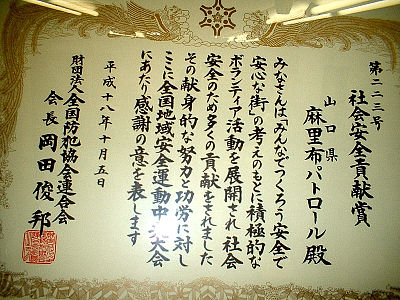 第二二三号
社会安全貢献賞
山口県
麻里布パトロール殿
みなさんは「みんなでつくろう安全で
安心な街」の考えのもとに積極的な
ボランティア活動を展開され社会
安全のため多くの貢献をされました
その献身的な努力と功労に対し
ここに全国地域安全運動中央大会
にあたり感謝の意を表します
平成十八年十月五日
財団法人全国防犯協会連合会
会長岡田俊邦